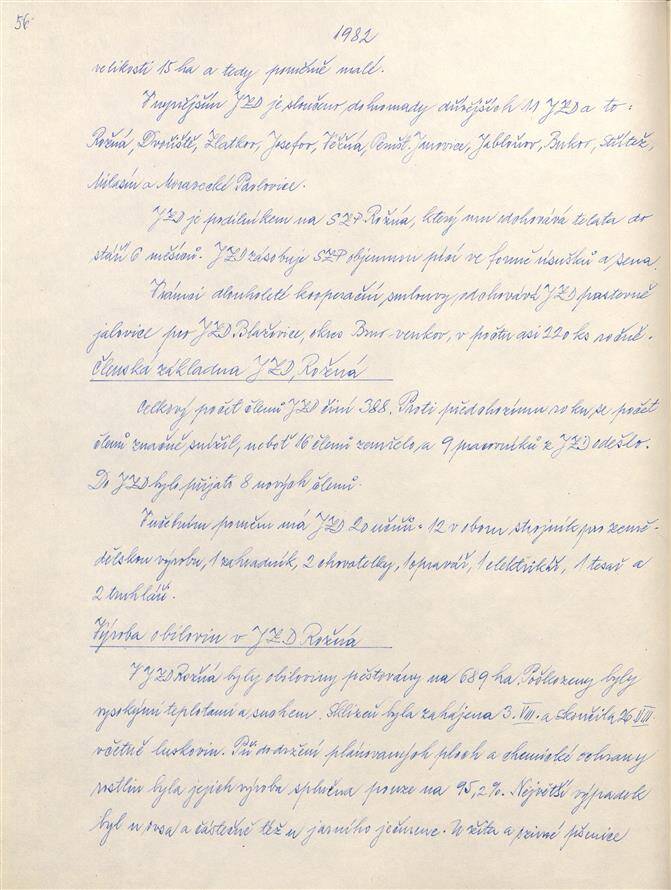 56
1982
velikosti 15 ha a tedy poměrně malé.
V nynějším JZD je sloučeno dohromady dřívějších 11 JZD a to:
Rožná, Dvořiště, Zlatkov, Josefov, Věžná, Pernšt. Janovice, Jabloňov, Bukov, Střítež,
Milasín a Moravecké Pavlovice.
JZD je podílníkem na SZP Rožná, který mu odchovává telata do
stáří 6 měsíců. JZD zásobuje SZP objemnou pící ve formě úsušků a sena.
V rámci dlouholeté kooperační smlouvy odchovává JZD pastevně
jalovice pro JZD Blažovice, okres Brno-venkov, v počtu asi 220 ks ročně.
Členská základna JZD Rožná
Celkový počet členů JZD činí 388. Proti předchozímu roku se počet
členů značně snížil, neboť 16 členů zemřelo a 9 pracovníků z JZD odešlo.
Do JZD bylo přijato 8 nových členů.
V učebním poměru má JZD 20 učňů - 12 v oboru strojník pro země-
dělskou výrobu, 1 zahradník, 2 chovatelky, 1 opravář, 1 elektrikář, 1 tesař a
2 truhláři.
Výroba obilovin v JZD Rožná
V JZD Rožná byly obiloviny pěstovány na 689 ha. Poškozeny byly
vysokými teplotami a suchem. Sklizeň byla zahájena 3. VIII. a skončila 26. VIII.
včetně luskovin. Při dodržení plánovaných ploch a chemické ochrany
rostlin byla jejich výroba splněna pouze na 95,2%. Největší výpadek
byl u ovsa a částečně též u jarního ječmene. U žita a ozimé pšenice